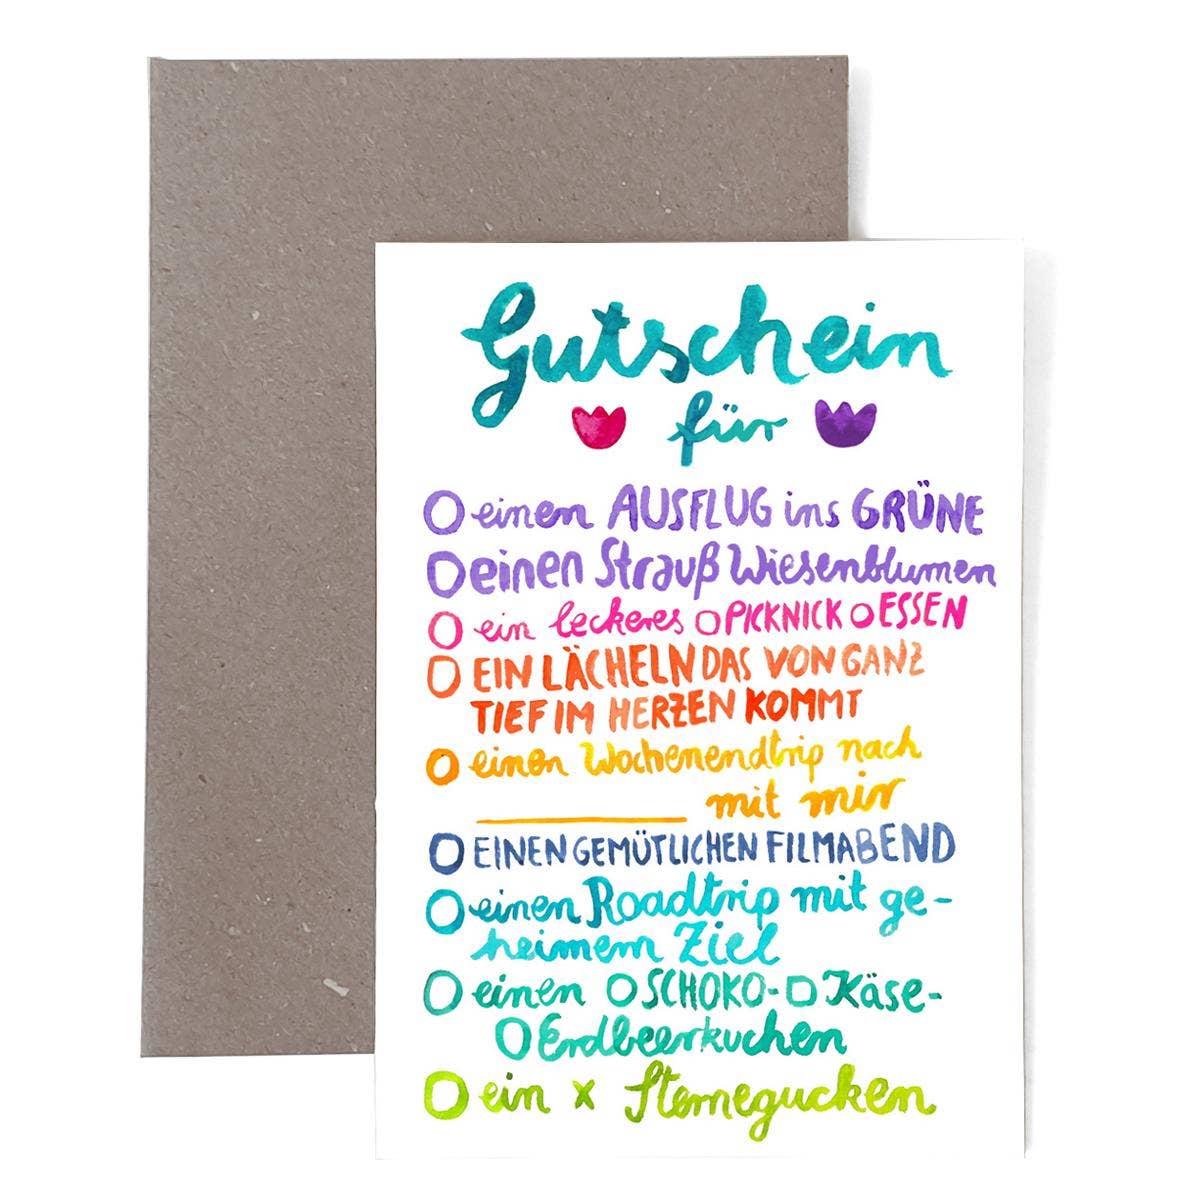 Gutschein
für
einen AUSFLUG ins GRÜNE
einen Strauß Wiesenblumen
ein leckeres PICKNICK ESSEN
EIN LÄCHELN DAS VON GANZ
TIEF IM HERZEN KOMMT
einen Wochenendtrip nach
________ mit mir
EINEN GEMÜTLICHEN FILMABEND
einen Roadtrip mit ge-
heimem Ziel
einen SCHOKO- Käse-
Erdbeerkuchen
ein x Sternegucken